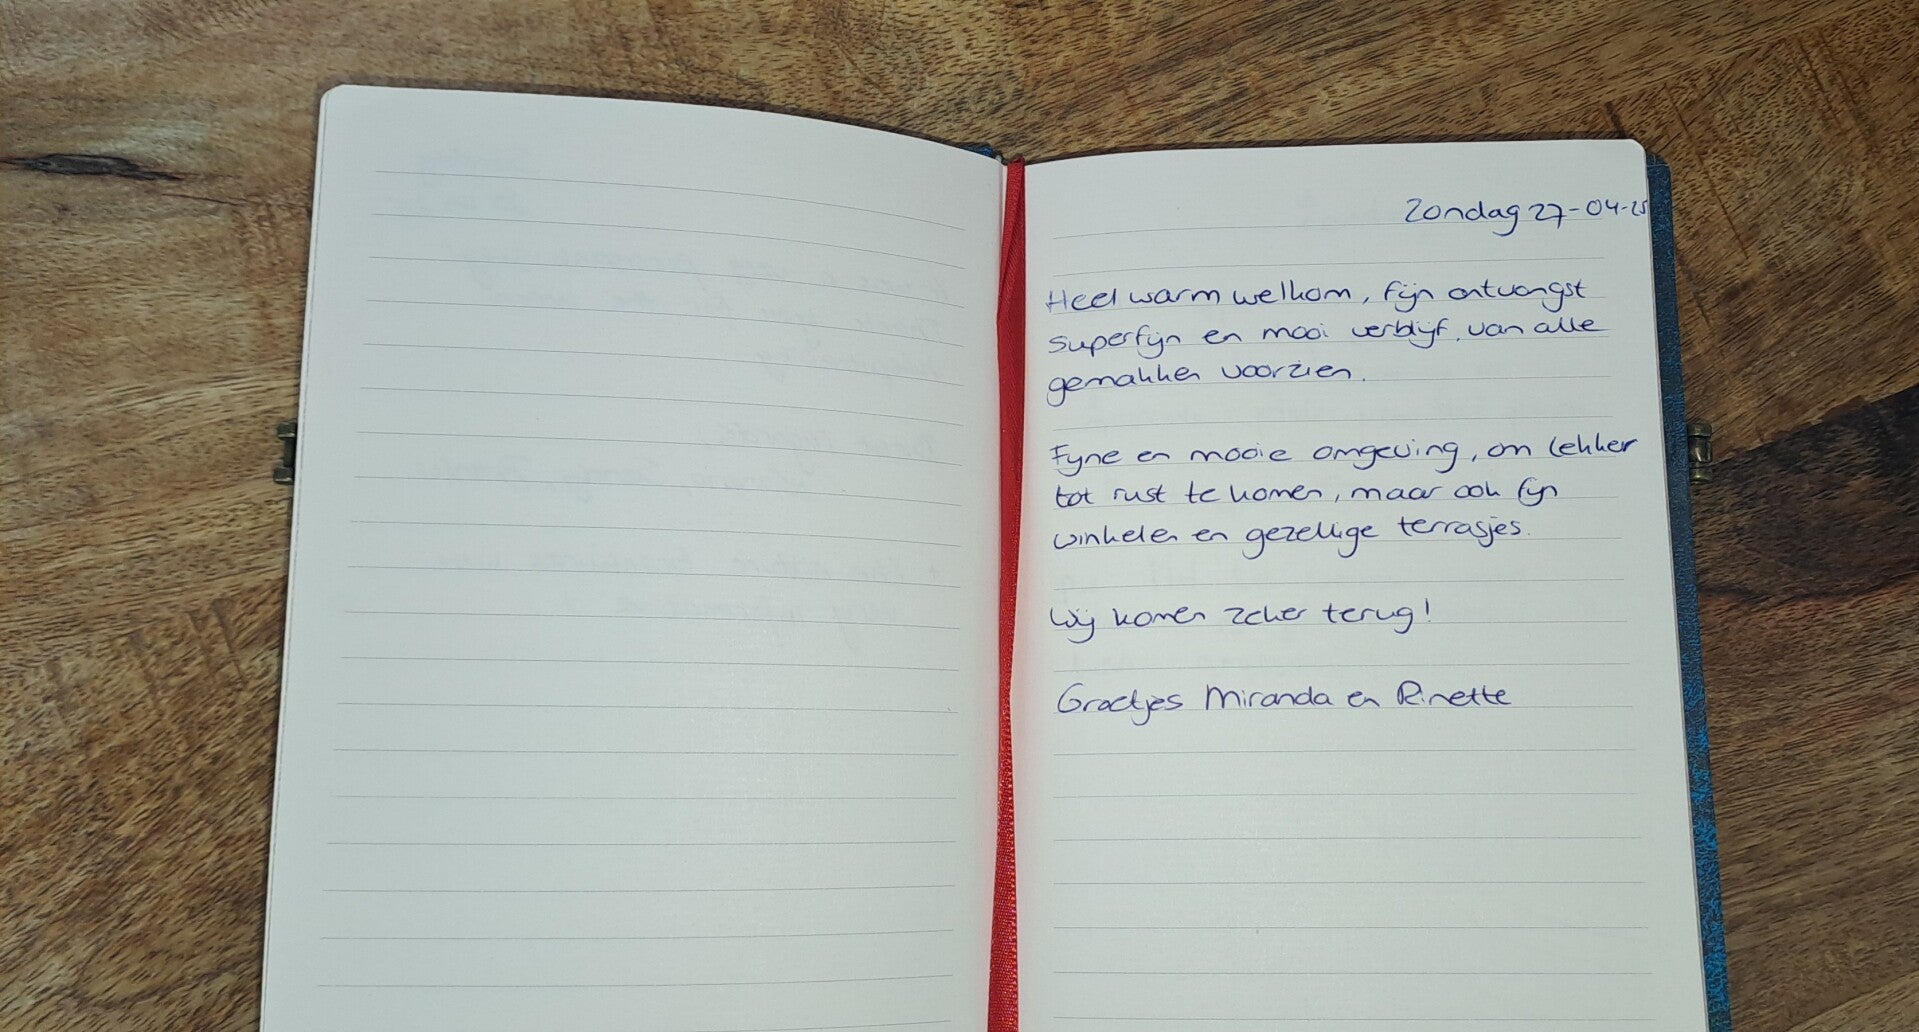 Zondag 27-04-25
Heel warm welkom, fijn ontvangst
superfijn en mooi verblijf, van alle
gemakken voorzien.
Fijne en mooie omgeving, om lekker
tot rust te komen, maar ook fijn
winkelen en gezellige terrasjes.
Wij komen zeker terug!
Groetjes Miranda en Rinette